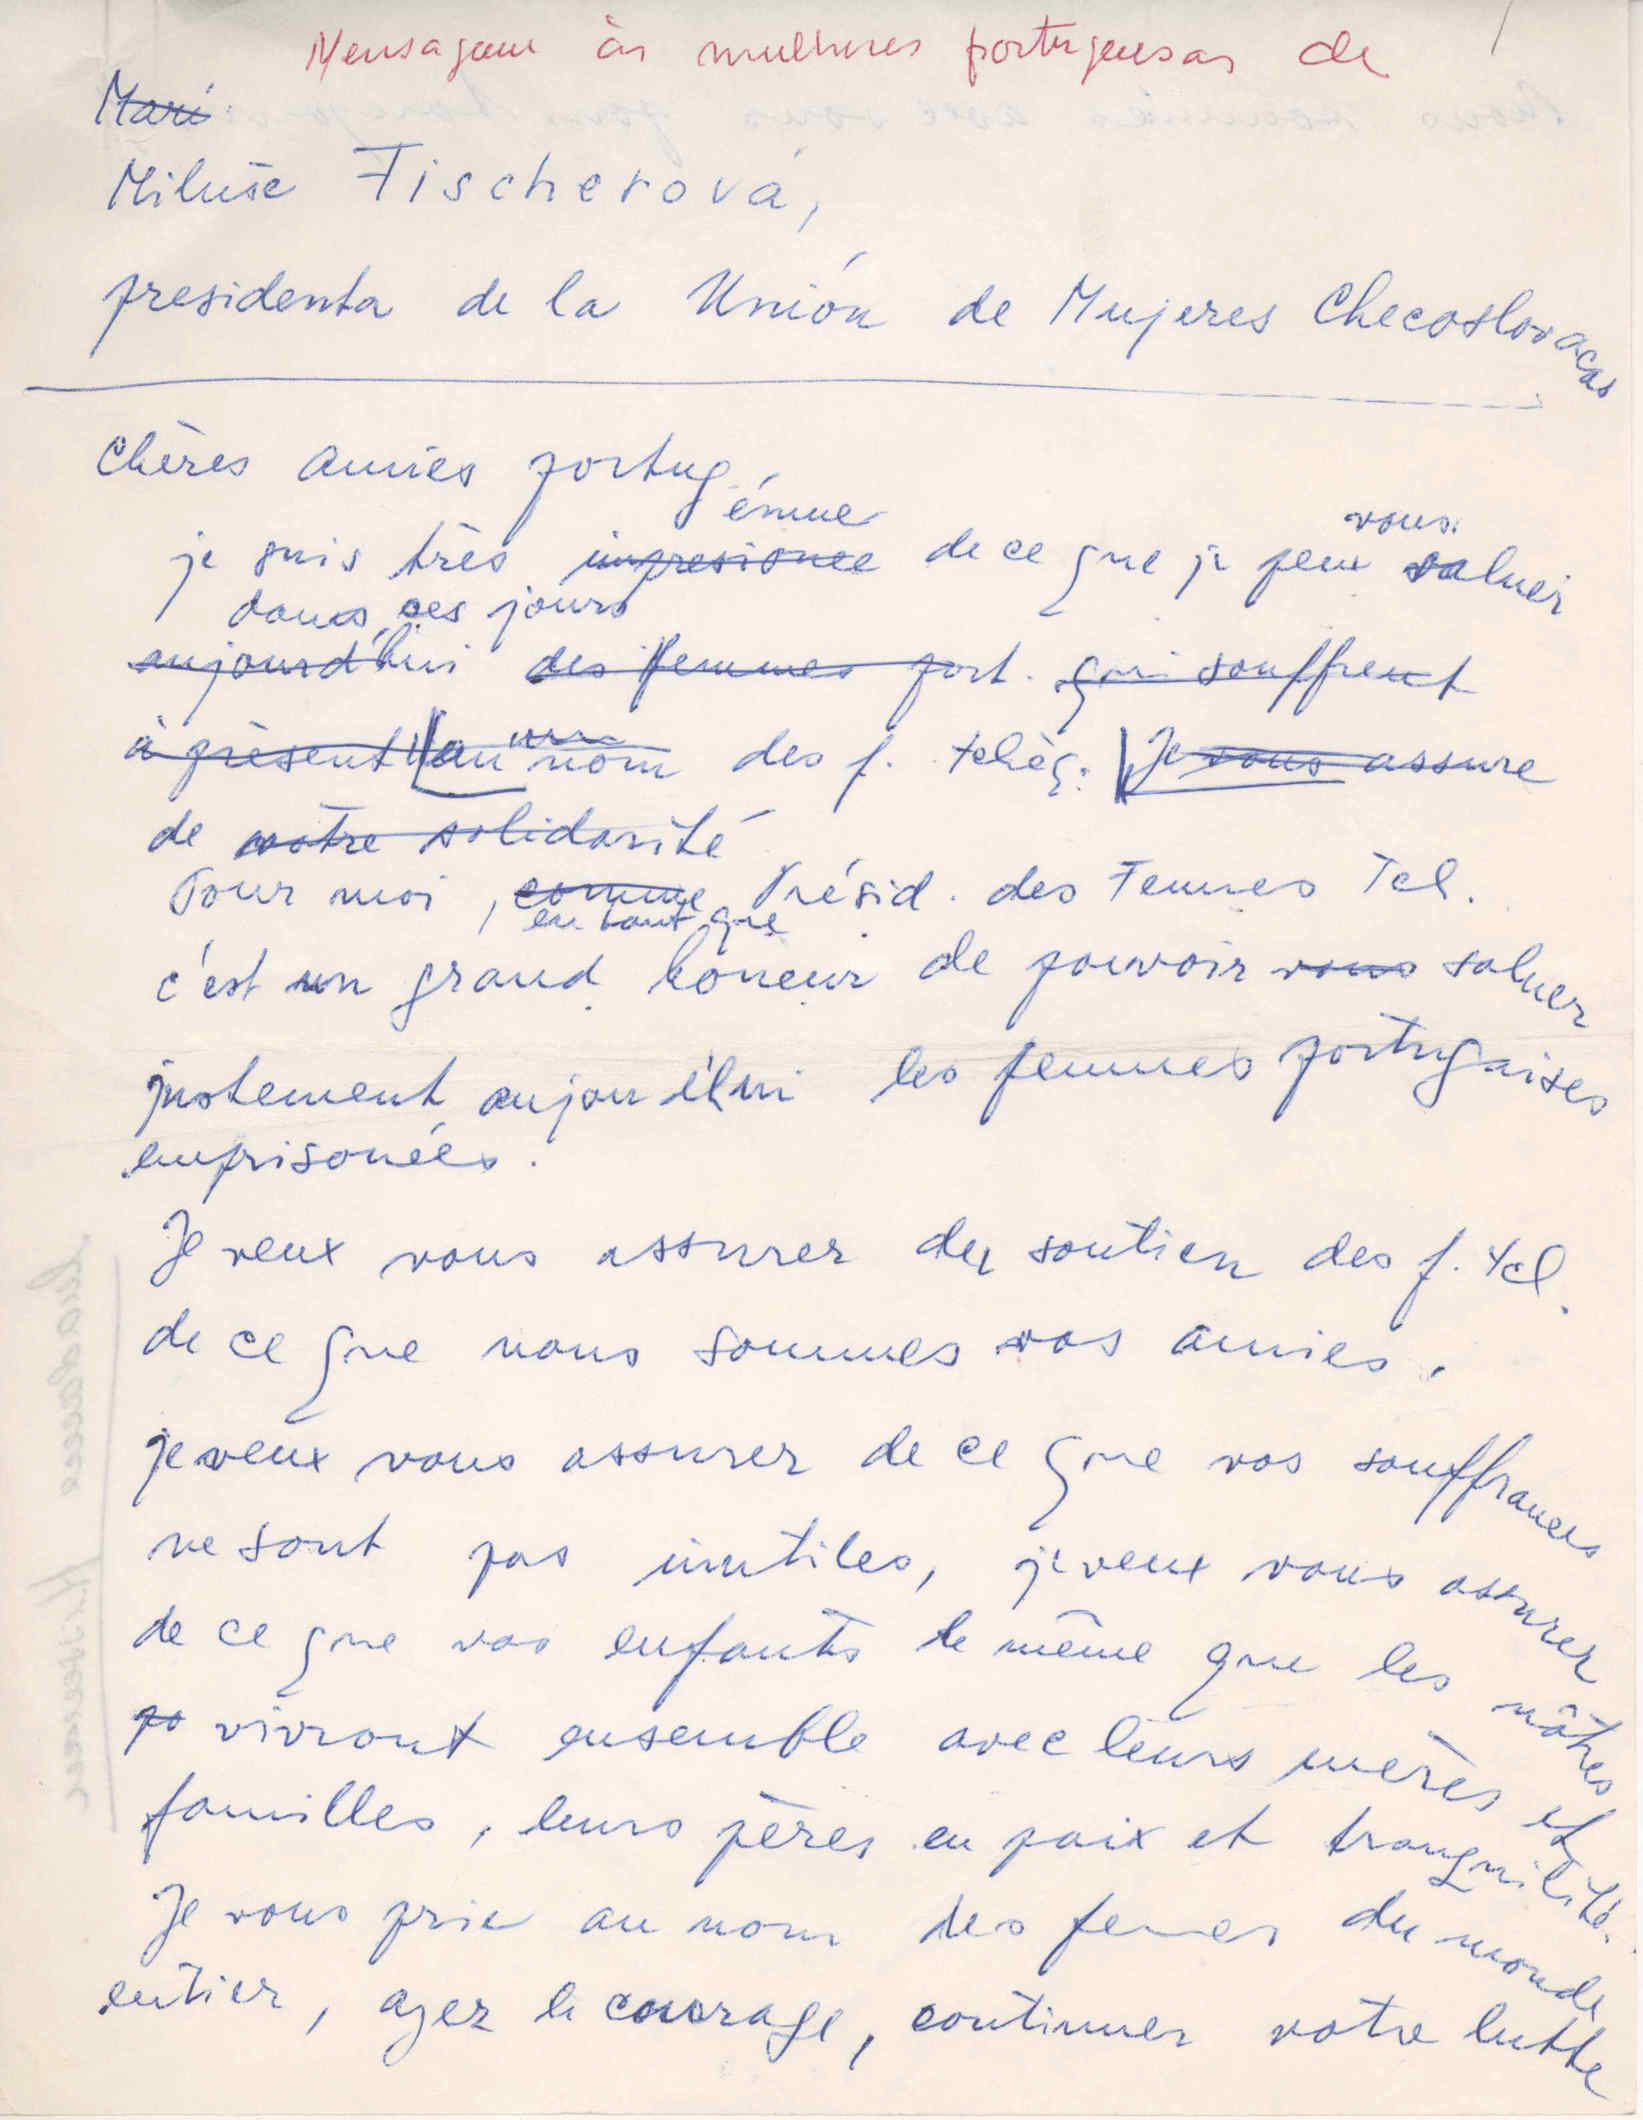 Mensagem às mulheres portuguesas de
Mari
Miluše Fischerová,
presidenta de la Unión de Mujeres Checoslovacas
Chères amies portug.
émue
vous
je suis très impresionee de ce que je peux saluer
dans ces jours
aujourd'hui des femmes port. qui souffrent
à présent au nom des f. tchèq. Je vous assure
de notre solidarité
Pour moi, comme Présid. des Femmes Tcl.
en tant que
c'est un grand honeur de pouvoir vous saluer
justement aujourd'hui les femmes portugaises
emprisonées.
Je veux vous assurer du soutien des f. tcl.
de ce que nous sommes vos amies.
je veux vous assurer de ce que vos souffrances
ne sont pas inutiles, je veux vous assurer
de ce que vos enfants le même que les nôtres
po vivront ensemble avec leurs mères et
familles, leurs pères en paix et tranquilité.
Je vous prie au nom des femmes du monde
entier, ayez le courage, continuer votre lutte